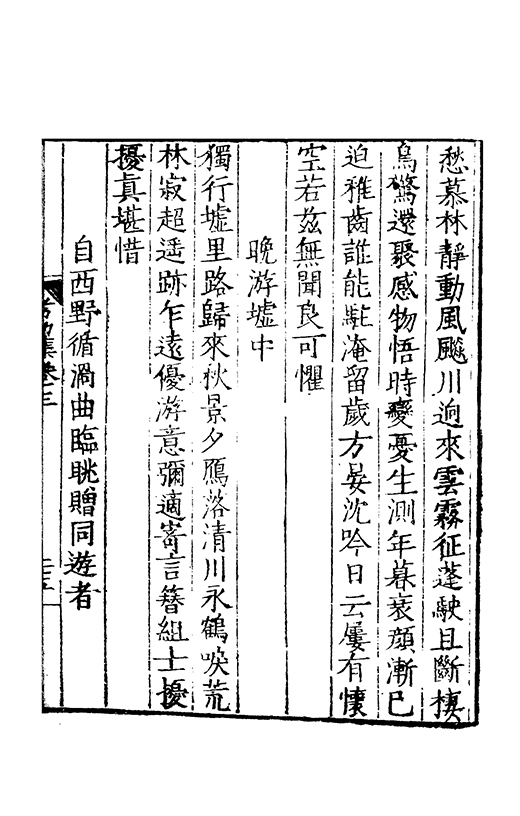 愁慕林靜動風飈川逈來雲霧征蓬駛且斷棲
鳥驚還聚感物悟時變憂生測年暮衰顏漸已
迫稚齒誰能駐淹留歲方晏沈吟日云屢有懷
空若茲無聞良可懼
晚游墟中
獨行墟里路歸來秋景夕鴈落清川永鶴唳荒
林寂超遥跡乍遠優游意彌適寄言簪組士擾
擾真堪惜
自西野循渦曲臨眺贈同遊者
集卷三